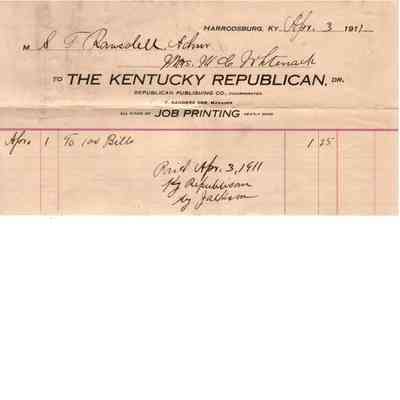 HARRODSBURG, KY. Apr. 3 1911
M S T Ransdell Admr
Mrs. W C Whitenack
TO THE KENTUCKY REPUBLICAN, DR.
REPUBLICAN PUBLISHING CO., INCORPORATED
T. SANDERS ORR, MANAGER
ALL KINDS OF JOB PRINTING NEATLY DONE
Apr 1 To 100 Bills 1 25
Paid Apr. 3, 1911
Ky Republican
by Jackson